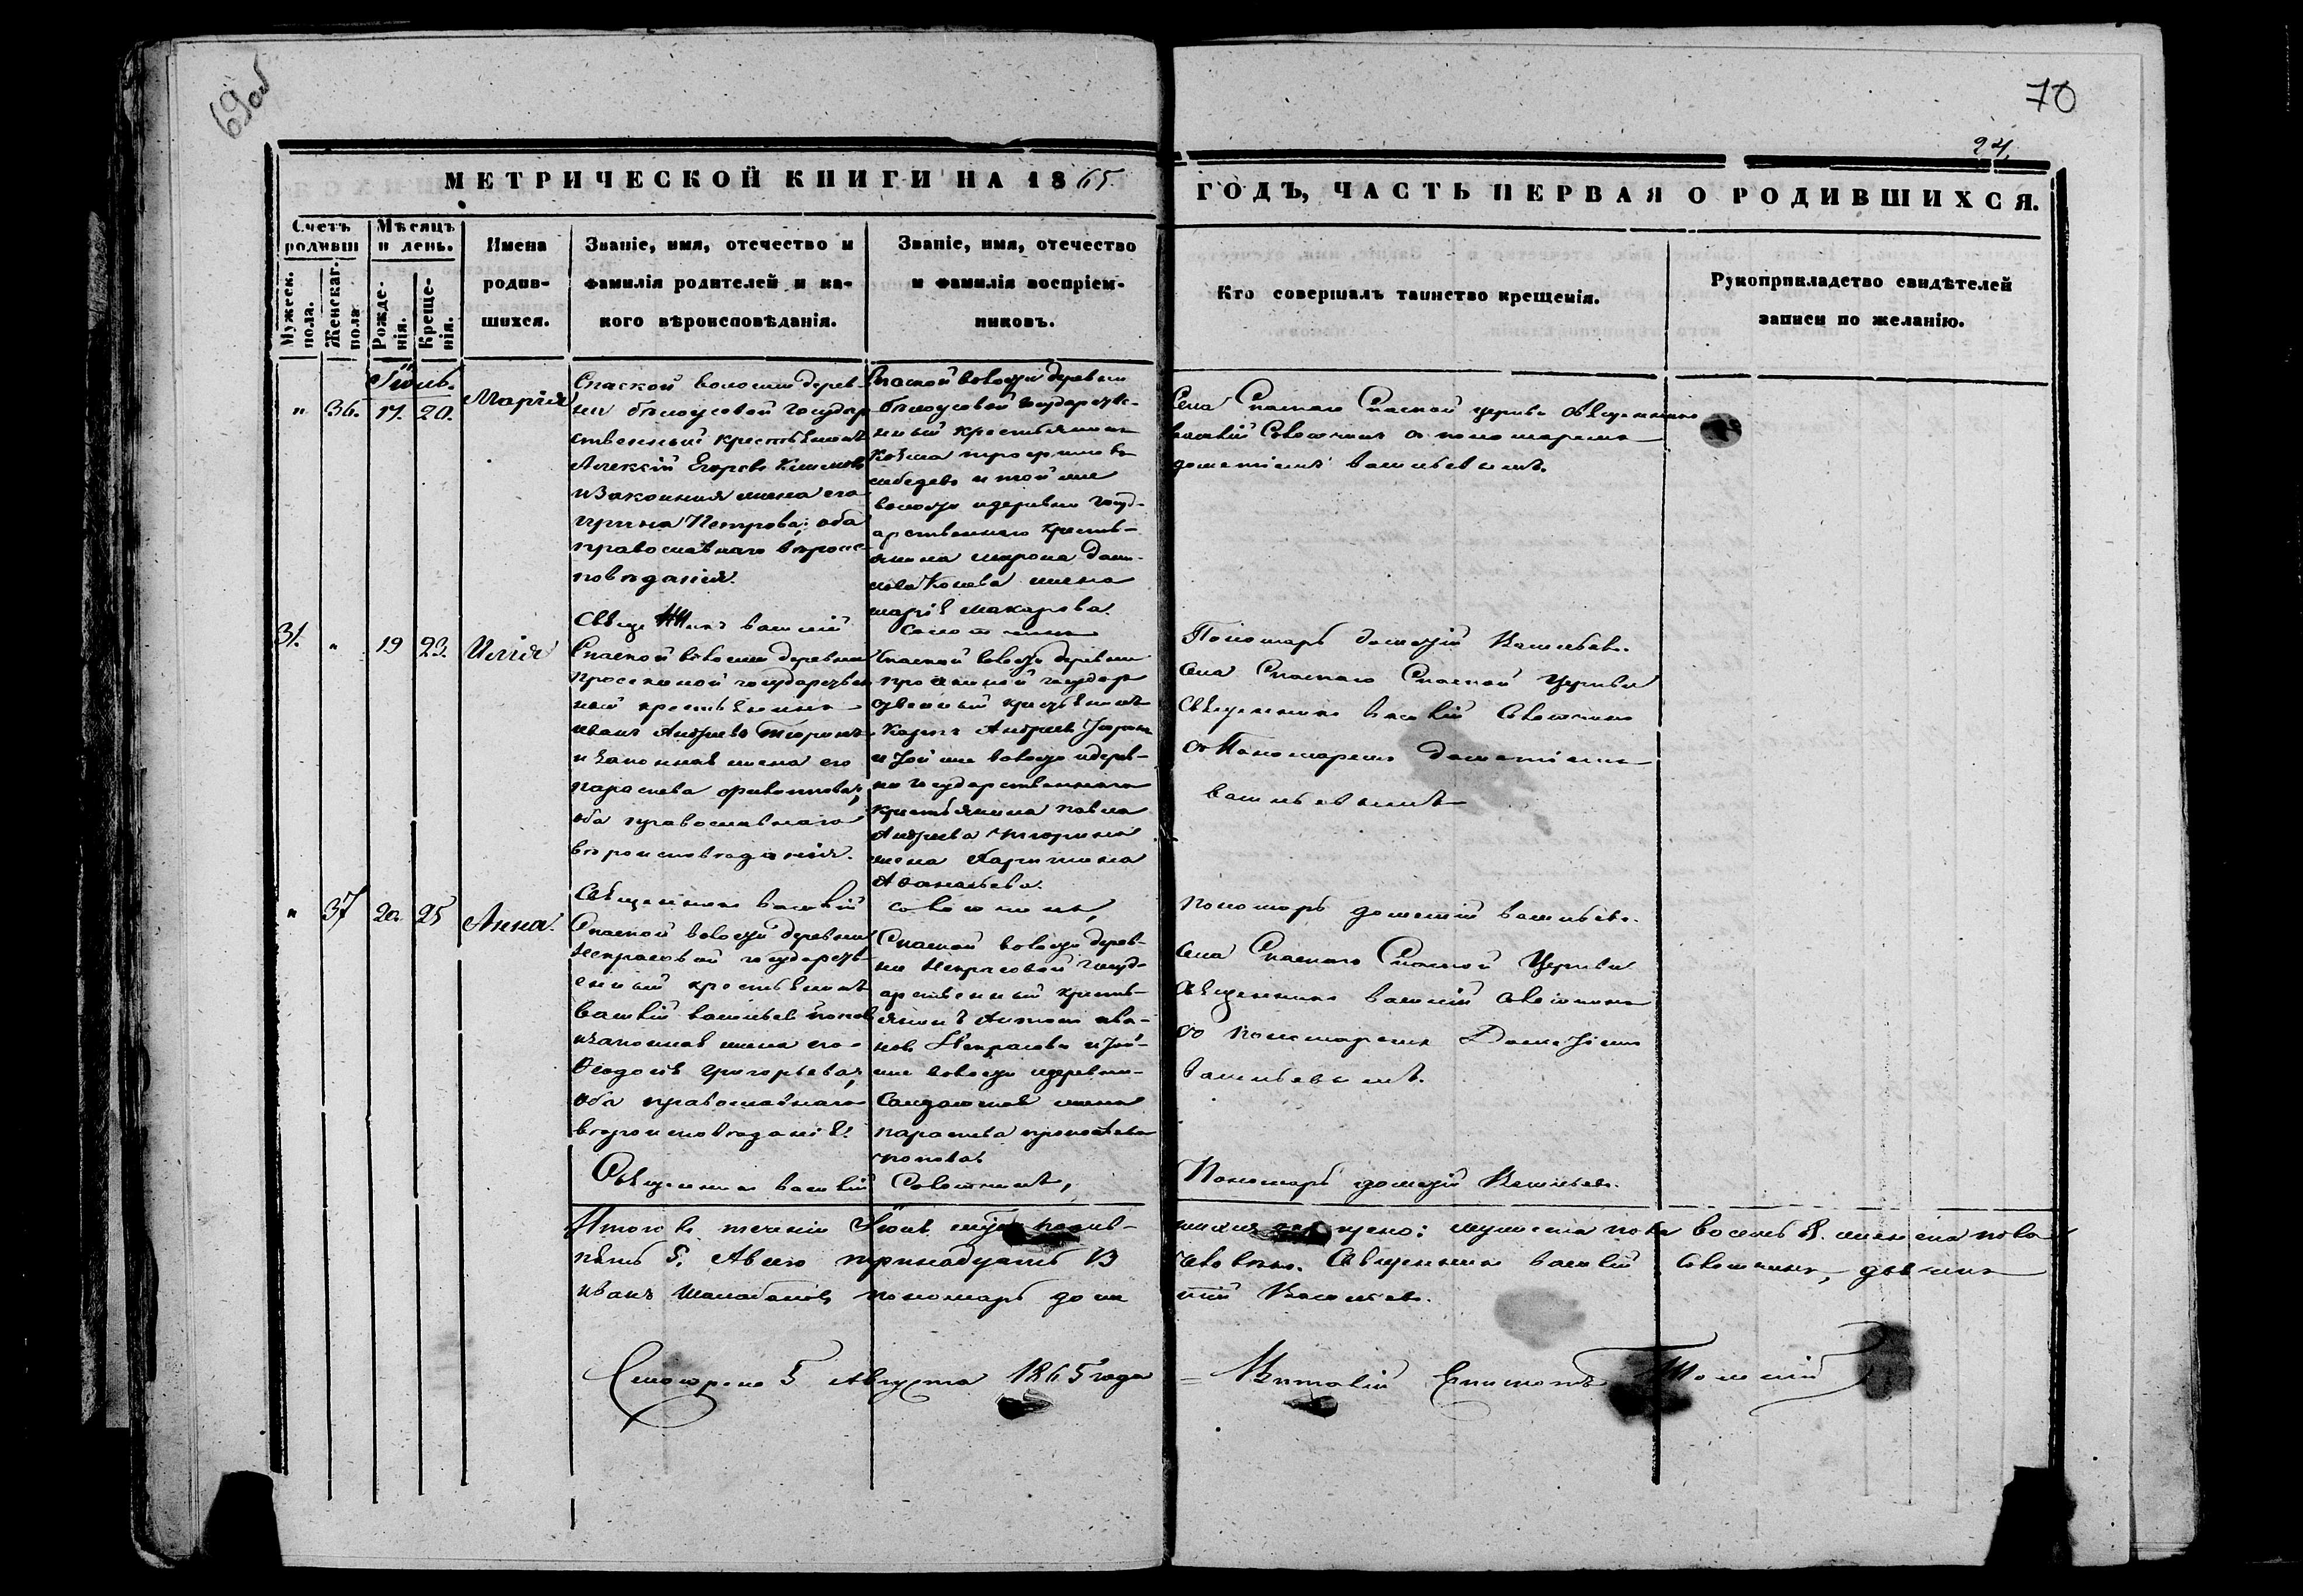 69об
70
24.
МЕТРИЧЕСКОЙ КНИГИ НА 1865.
ГОДЪ, ЧАСТЬ ПЕРВАЯ О РОДИВШИХСЯ.
Счетъ родивш
Мужеск. пола.
Женскаг. пола
Мѣсяцъ и день.
Рожде-нія.
Креще-нія.
Имена
родив-
шихся.
Званіе, имя, отчество и
фамилія родителей и ка-
кого вѣроисповѣданія.
Званіе, имя, отчество
и фамилія воспріем-
никовъ.
Кто совершалъ таинство крещенія.
Рукоприкладство свидѣтелей
записи по желанію.
Іюнь.
" 36. 17. 20. Марія
Спаской волости дерев-
ни бѣлоусовой государ
ственный крестьянинъ
Алексій Егоровъ
и законная жена его
ирина Петрова; оба
православнаго вѣроис-
повѣданія.
Спаской волости деревни
бѣлоусовой государстве-
нный крестьянинъ
Козма трофимовъ
лебедевъ и той же
волости и деревни госуд-
арственнаго кресть-
янина мирона дани-
лова жена
марія макарова.
Села Спаскаго Спаской церкви священникъ
василій Совѣткинъ съ пономаремъ
дометіемъ васильевымъ.
священникъ василій
31. " 19 23. Илія
Спаской волости деревни
просекиной государствен
ный крестьянинъ
иванъ Андреевъ тюринъ
и законная жена его
параскева
оба православнаго
вѣроисповѣданія.
Спаской волости деревни
просекиной государ
ственный крестьянинъ
Карпъ Андреевъ
и той же волости и дерев-
ни государственнаго
крестьянина павла
Андреева тюрина
жена Харитина
Афанасьева.
Пономарь дометій Васильевъ.
Села Спаскаго Спаской Церкви
Священникъ василій
съ Пономаремъ дометіемъ
васильевымъ
Священникъ василій
" 37 20. 25 Анна.
Спаской волости деревни
Некрасовой государств-
енный крестьянинъ
василій васильевъ поповъ
и законная жена его
Феодосія григорьева,
оба православнаго
вѣроисповѣданія.
Спаской волости дерев-
ни Некрасовой госуд-
арственный кресть-
янинъ Антонъ ива-
новъ Некрасовъ и той-
же волости и деревни
жена
параскева
попова
Пономарь дометій васильевъ.
Села Спаскаго Спаской Церкви
священникъ василій
съ пономаремъ Дометіемъ
васильевымъ.
Священникъ василій
Пономарь дометій Васильевъ.
Итого въ теченіи Іюня
мужеска пола восемь 8. женска пола
пять 5. А всего тринадцать 13
человѣкъ. Священникъ василій
иванъ пономарь доме
тій Васильевъ.
Смотрено 5 Августа 1865 года
= Виталій Епископъ Томскій